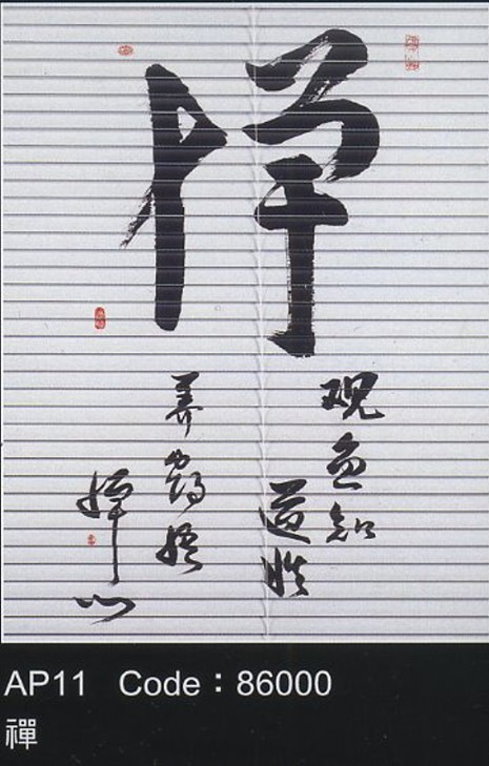 禅
观鱼知
道性
养鹤悟
禅心
AP11 Code：86000
禪